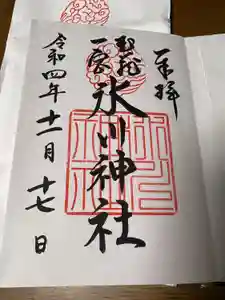 奉拝
武蔵
一宮
氷川神社
令和四年十一月十七日